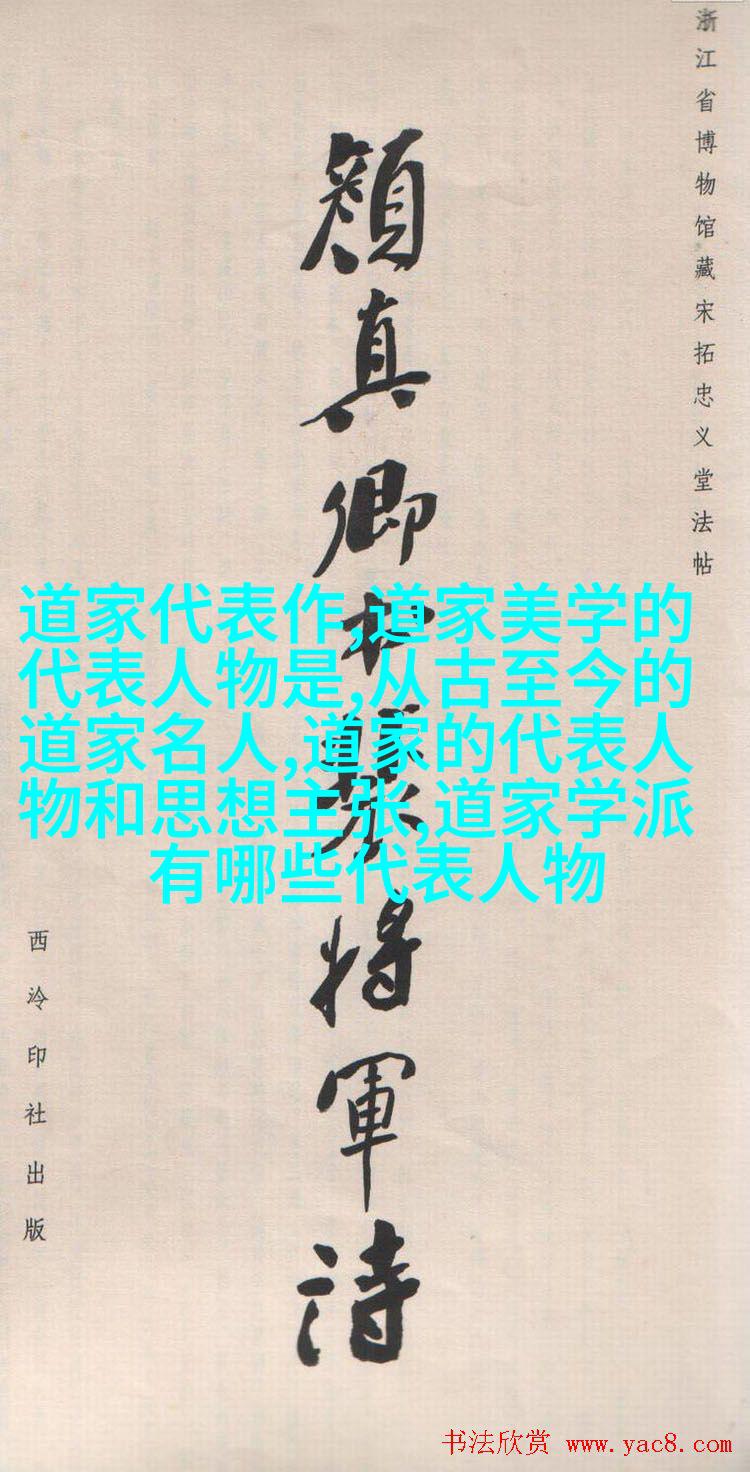 浙江省博物馆藏宋拓忠义堂法帖
顏真卿
將軍詩
道家代表作,道家美学的
代表人物是,从古至今的
道家名人,道家的代表人
物和思想主张,道家学派
有哪些代表人物
西泠印社出版
书法欣赏 www.yac8.com